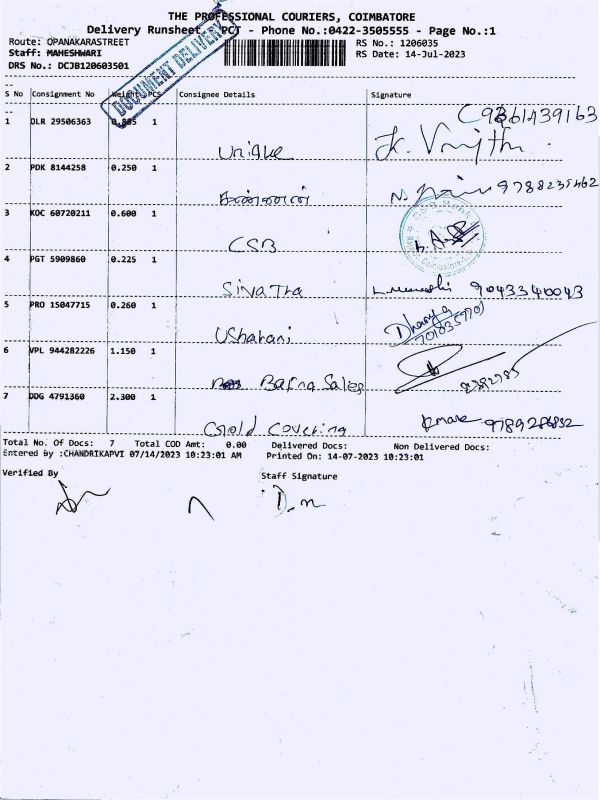 THE PROFESSIONAL COURIERS, COIMBATORE
Delivery Runsheet - PCT - Phone No.:0422-3505555 - Page No.:1
Route: OPANAKARASTREET
RS No.: 1206035
Staff: MAHESHWARI
RS Date: 14-Jul-2023
DRS No.: DCJB120603501
DOCUMENT DELIVERY
S No Consignment No Weight PCS Consignee Details Signature
C 9361439163
1 DLR 29506363 0.885 1
Unique
2 PDK 8144258 0.250 1
9788235462
3 KOC 60720211 0.600 1
CSB
4 PGT 5909860 0.225 1
Sivatha 9043340043
5 PRO 15047715 0.260 1
Dhanya
Usharani
6 VPL 944282226 1.150 1
Bafna Sales
7 DDG 4791360 2.300 1
Gold Covering 9789286832
Total No. Of Docs: 7 Total COD Amt: 0.00 Delivered Docs: Non Delivered Docs:
Entered By :CHANDRIKAPVI 07/14/2023 10:23:01 AM Printed On: 14-07-2023 10:23:01
Verified By Staff Signature